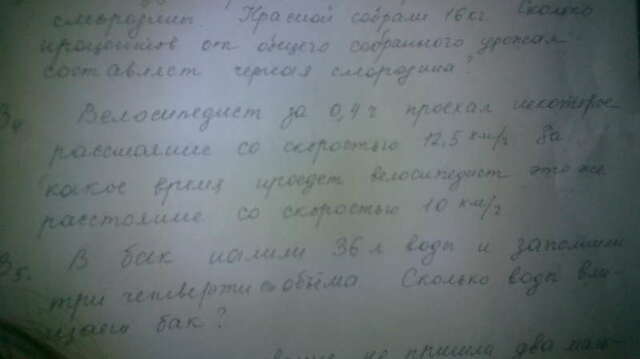 смородины Красной собрали 16 кг Сколько
процентов от общего собранного урожая
составляет черная смородина?
В4 Велосипедист за 0,4 ч проехал некоторое
расстояние со скоростью 12,5 км/ч За
какое время проедет велосипедист это же
расстояние со скоростью 10 км/ч
В5. В бак налили 36 л воды и заполнили
три четверти объёма Сколько воды вме-
щает бак?
не пришла два маль-